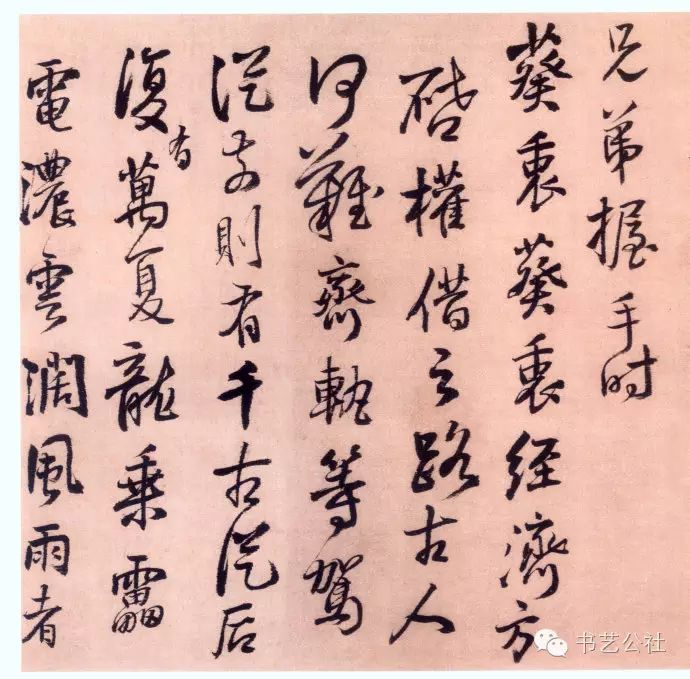 兄弟握手时
葵衷葵衷经济方
啓權借之路古人
何難齊軌等駕
從前則有千古從后
復有萬夏龍乗靁
電濃雲潤風雨者
书艺公社